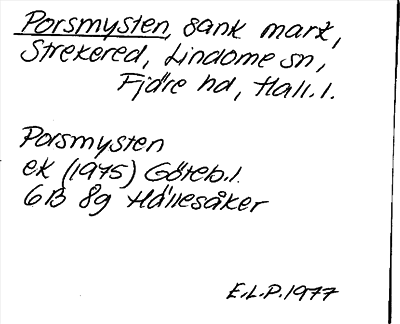 Porsmysten, sank mark,
Strekered, Lindome sn,
Fjäre hd, Hall. l.
Porsmysten
ek (1975) Göteb. l.
6B 8g Hällesåker
E.L.P. 1977